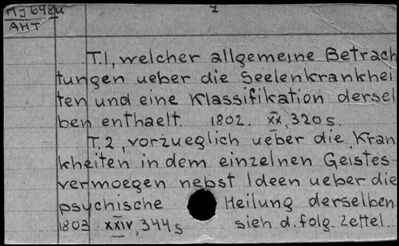 MJ 648u 2
AHT
T.1, welcher allgemeine Betrach
tungen ueber die Seelenkrankhei
ten und eine Klassifikation dersel
ben enthaelt. 1802. xx, 320 s.
T.2, vorzueglich ueber die Kran
kheiten in dem einzelnen Geistes-
vermoegen nebst Ideen ueber die
psychische Heilung derselben
1803 xxiv, 344 s sieh d. folg. Zettel...